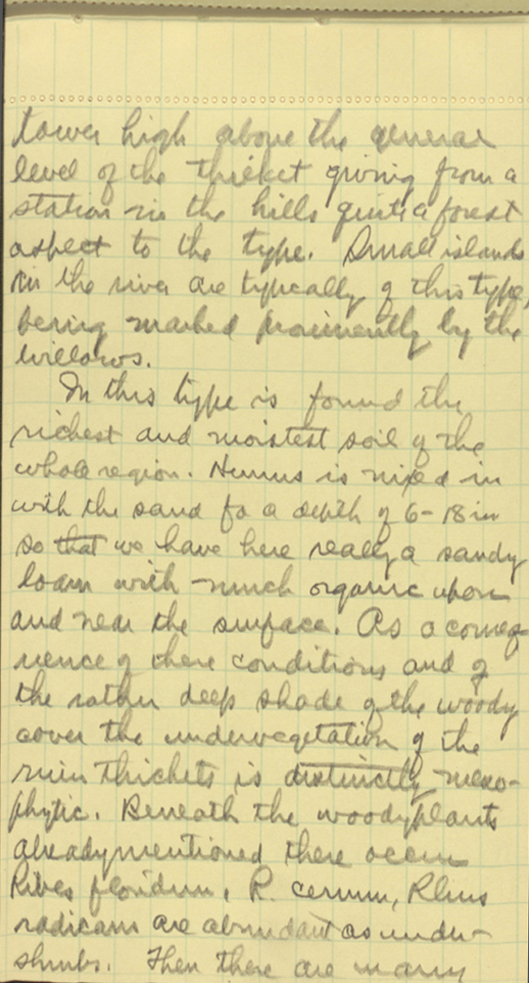 tower high above the general
level of the thicket giving from a
station in the hills quite a forest
aspect to the type. Small islands
in the river are typically of this type,
being marked prominently by the
willows.
In this type is found the
richest and moistest soil of the
whole region. Humus is mixed in
with the sand to a depth of 6-18 in
so that we have here really a sandy
loam with much organic upon
and near the surface. As a conseq-
uence of these conditions and of
the rather deep shade of the woody
cover the undervegetation of the
river thickets is distinctly meso-
phytic. Beneath the woody plants
already mentioned there occur
Ribes floridum, R. cereum, Rhus
radicans are abundant as under-
shrubs. Then there are many